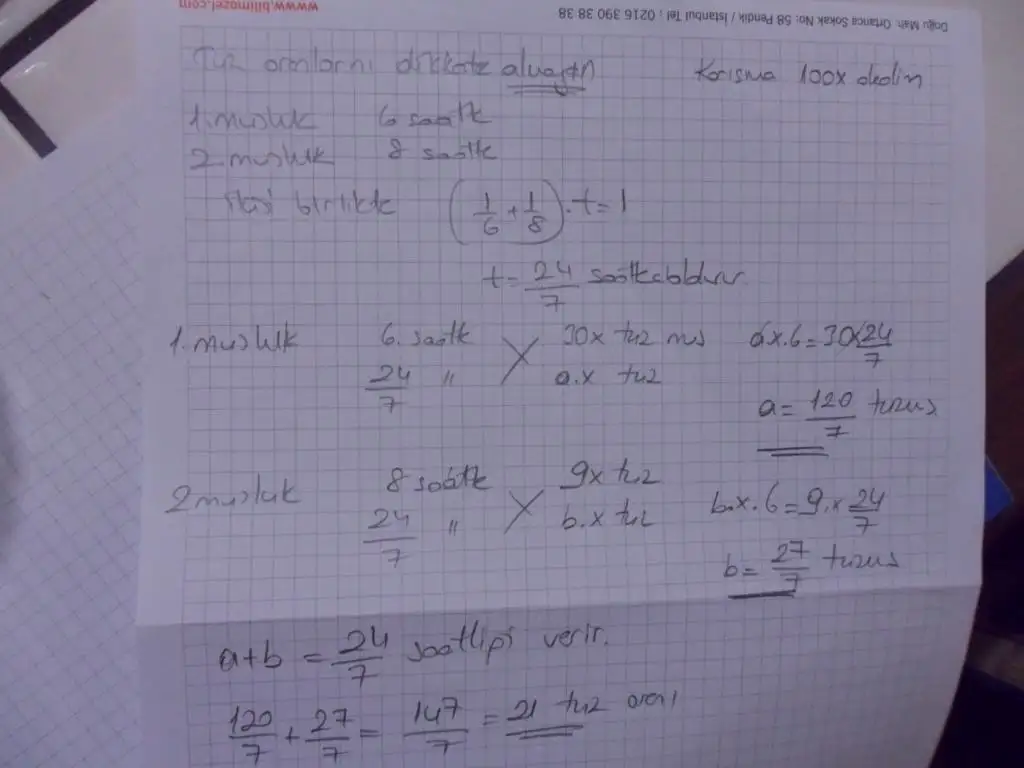 www.bilimozel.com
Doğu Mah. Ortanca Sokak No: 58 Pendik / İstanbul Tel : 0216 390 38 38
Tuz oranlarnı dikkate Karışıma 100x dedim
1. musluk 6 saatte
2 musluk 8 saatte
İkisi birlikte (1/6 + 1/8) . t = 1
t = 24/7 saatte doldurur.
1. musluk 6. saatte 30x tuz a.x.6 = 30x 24/7
24/7 " a.x tuz
a = 120/7
2 musluk 8 saatte 9x tuz b.x.6 = 9.x 24/7
24/7 " b.x tuz
b = 27/7
a+b = 24/7 saatliği verir.
120/7 + 27/7 = 147/7 = 21 tuz oranı